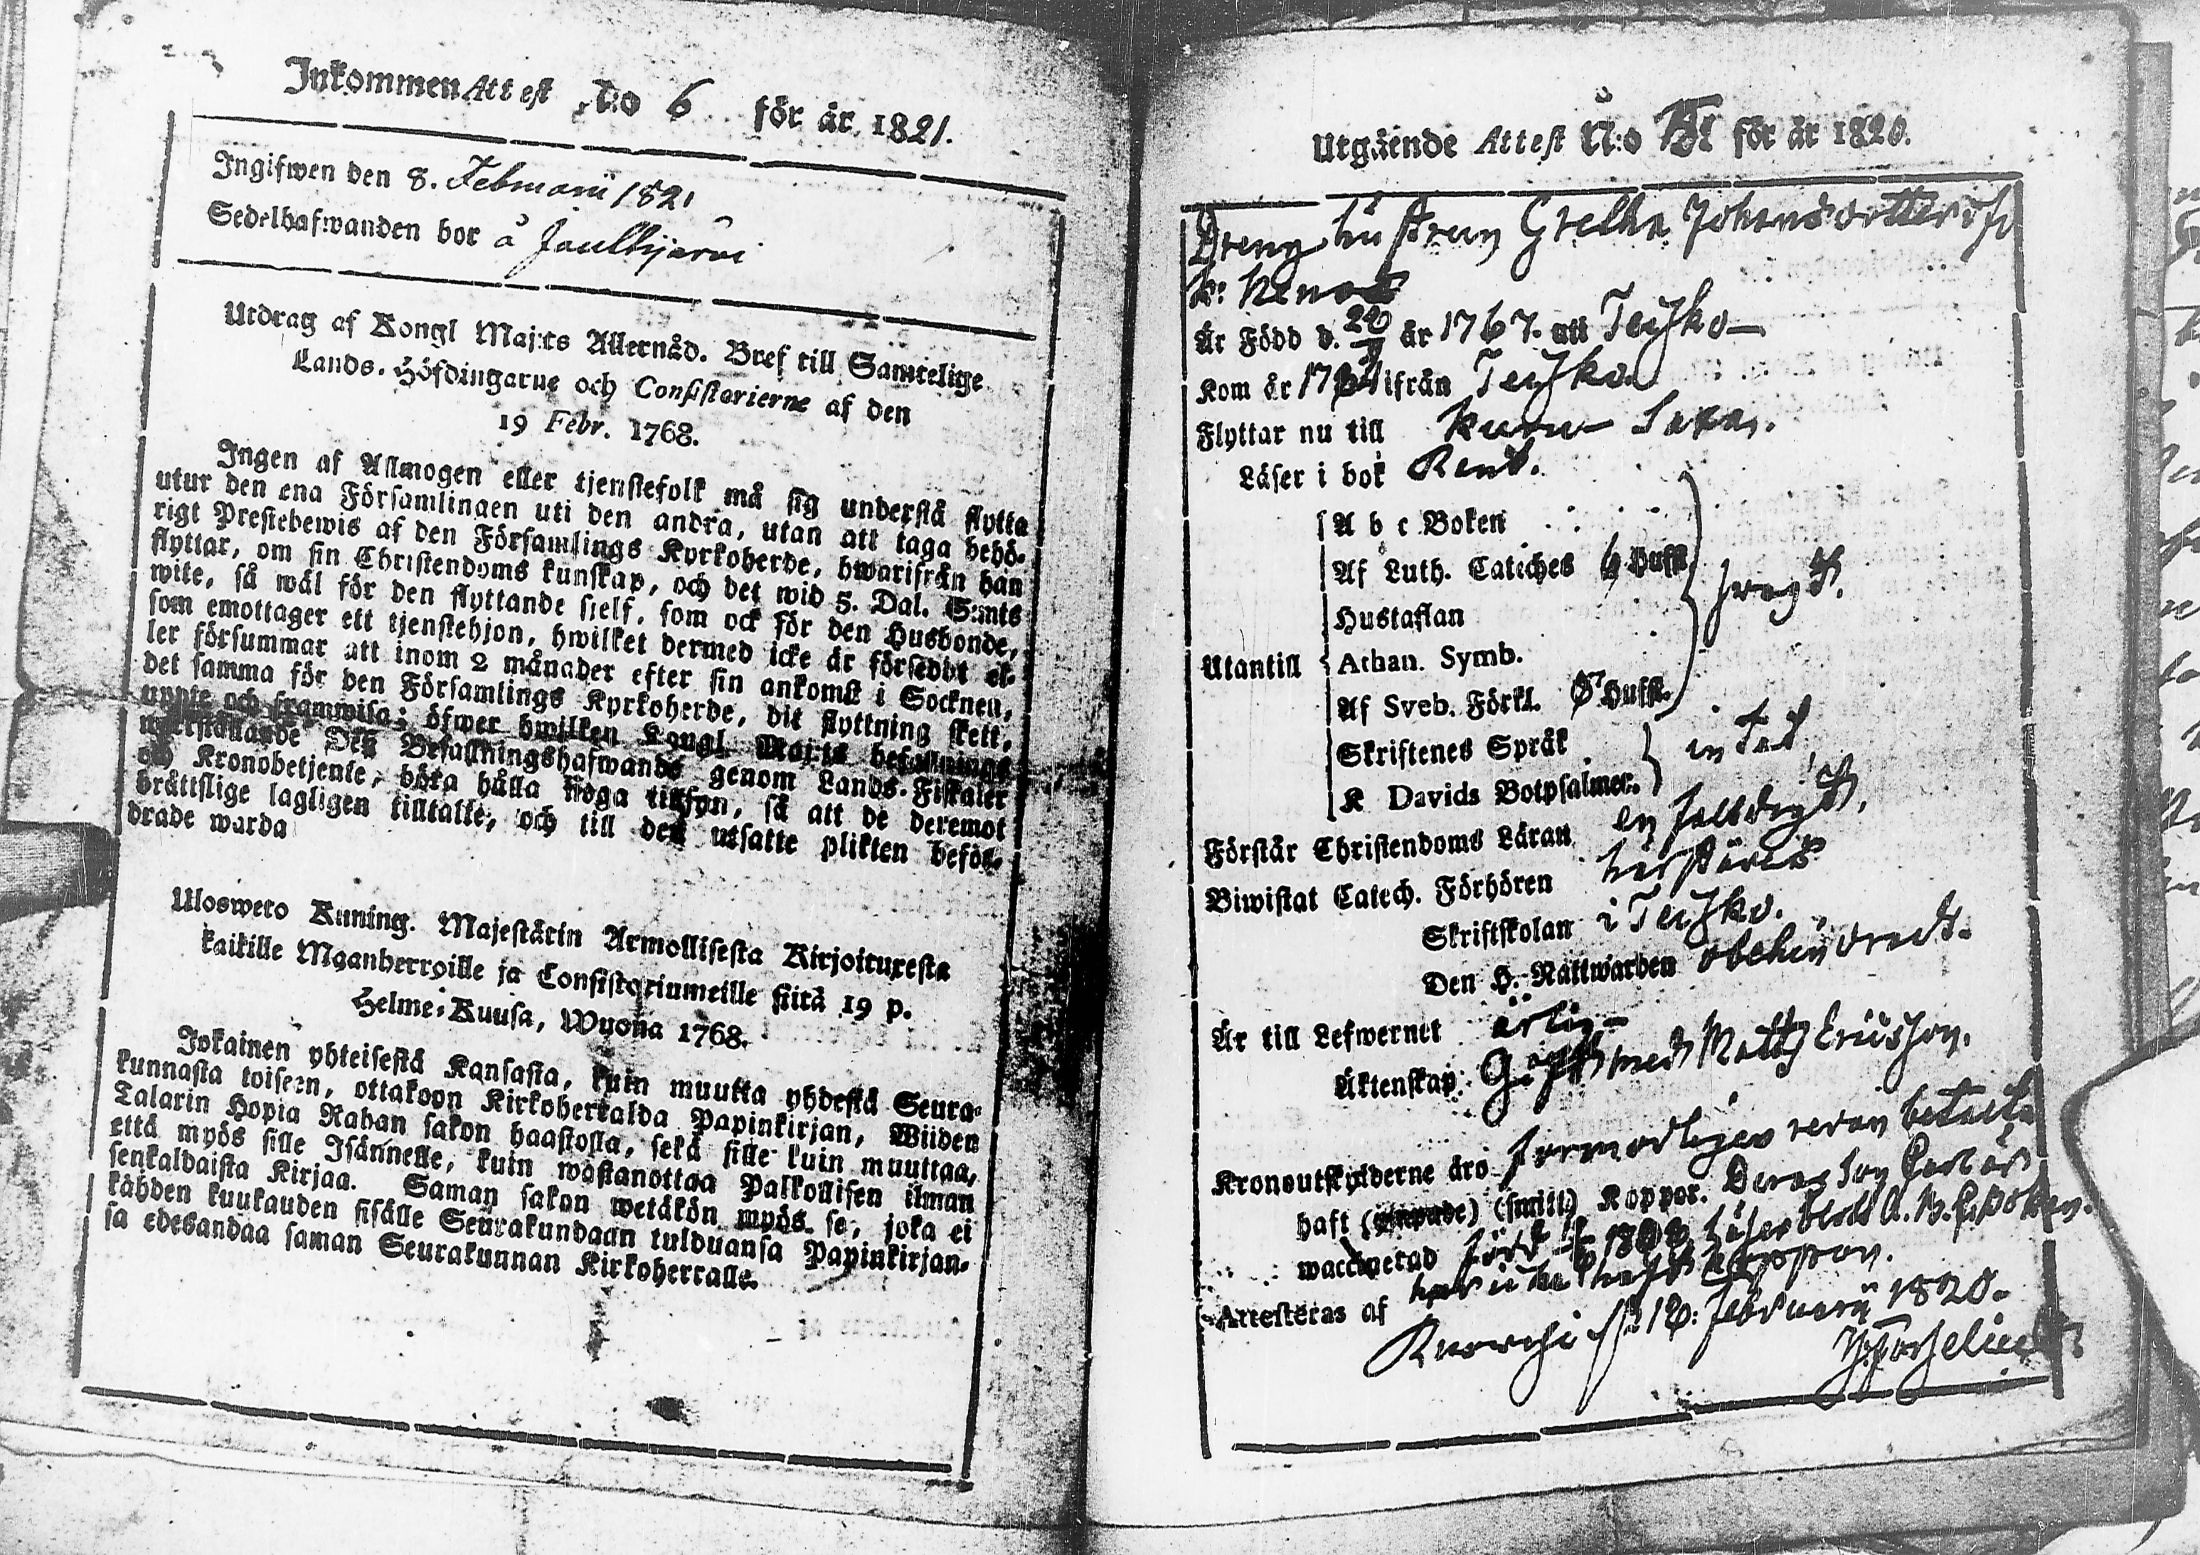 Inkommen Attest N:o 6 för år 1821.
Ingifwen den 8. Februarii 1821
Sedelhafwanden bor å Jaulhjärvi
Utdrag af Kongl Maj:ts Allernåd. Bref till Samtelige
Lands-Höfdingarne och Consistorierne af den
19 Febr. 1768.
Ingen af Allmogen eller tjenstefolk må sig understå flytta
utur den ena Församlingen uti den andra, utan att taga behö-
rigt Prestebewis af den Församlings Kyrkoherde, hwarifrån han
flyttar, om sin Christendoms kunskap, och det wid 5. Dal. S:mts
wite, så wäl för den flyttande sielf, som ock för den Husbonde,
som emottager ett tjenstehjon, hwilket dermed icke är försedt el-
ler försummar att inom 2 månader efter sin ankomst i Socknen,
det samma för den Församlings Kyrkoherde, dit flyttning skett,
uppte och framwisa; öfwer hwilken Kongl. Maj:ts befallnings
werkställande Dess Befallningshafwande genom Lands-Fiskaler
och Kronobetjente, böra hålla noga tillsyn, så att de deremot
brättslige lagligen tilltalte, och till den utsatte plikten beför-
drade warda
Uloswето Kuning. Majestätin Armollisesta Kirjoituxesta
kaikille Maanherroille ja Consistoriumeille siitä 19 p.
Helme-Kuusa, Wuona 1768.
Jokainen yhteisestä Kansasta, kuin muutta yhdestä Seura-
kunnasta toiseen, ottakoon Kirkoherralda Papinkirjan, Wiiden
Talarin Hopia Rahan sakon haastolla, sekä sille kuin muuttaa,
että myös sille Isännelle, kuin wastanottaa Palkollisen ilman
senkaldaista Kirjaa. Saman sakon wetäkön myös se, joka ei
kahden kuukauden sisälle Seurakundaan tulduansa Papinkirjan-
sa edesandaa saman Seurakunnan Kirkoherralle.
Utgående Attest N:o för år 1820.
Dreng hustrun Gretha Johansdotter
Är Född d. år 1767. uti Teisko
Kom år ifrån Teisko.
Flyttar nu till Kuru
Läser i bok Rent.
A b c Boken
Af Luth. Cateches 6 Hufst.
Hustaflan
Utantill Athan. Symb.
Af Sveb. Förkl. Hufst.
Skriftenes Språk
K Davids Botpsalmer.
Förstår Christendoms Läran
Biwistat Catech. Förhören
Skriftskolan i Teisko.
Den H. Nattwarden obehindradt.
Är till Lefwernet ärlig
Äktenskap: Gift med Matts Ericsson.
Kronoutskylderne äro
haft (smitt) Koppor. Deras son
waccinerad född
Attesteras af har icke haft Koppor.
Februarii 1820.